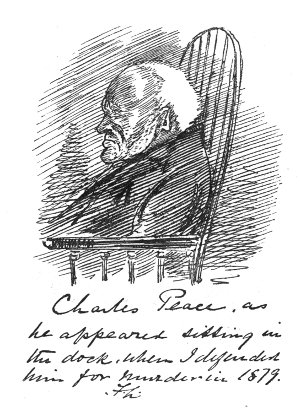 Charles Peace, as
he appeared sitting in
the dock, when I defended
him for murder in 1879.